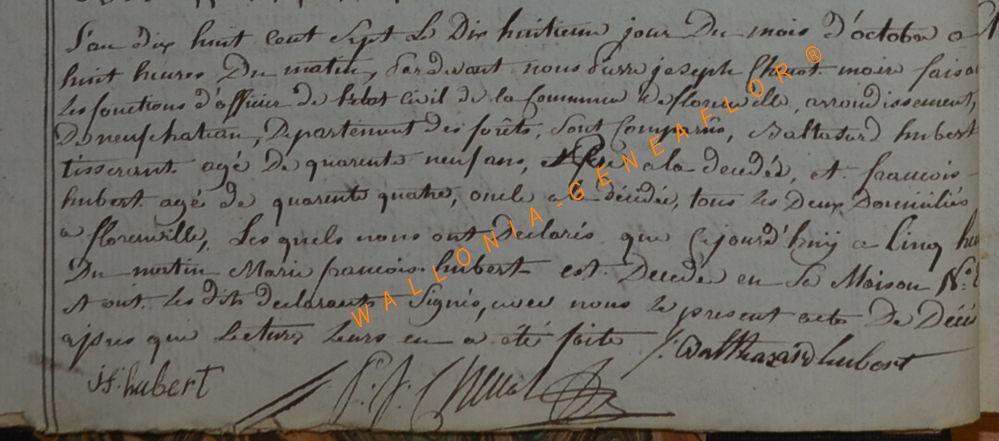 L'an dix huit cent sept le Dix huitieme jour Du mois d'octobre a
huit heures Du matin, Par devant nous pierre joseph maire faisa
Les fonctions d'officier de l'etat Civil de la Commune de florenville, arrondissement,
De neufchateau, Departement des forêts, sont Comparus, Baltasard hubert
tisserant agé De quarente neuf ans, Pere a la decedée, et francois
hubert agé de quarente quatre, oncle a la décédée, tous les Deux Domiciliés
a florenville, Les quels nous ont Declarés que Cejourd'huy a Cinq heu
Du matin Marie francoise hubert est Decedée en Sa Maison N°
et ont les dits declarants Signés, avec nous le present acte De Décé
apres que Lecture Leurs en a été faite Balthazard hubert
J f. hubert P. J.
WALLONIA-GENEAFLOR®